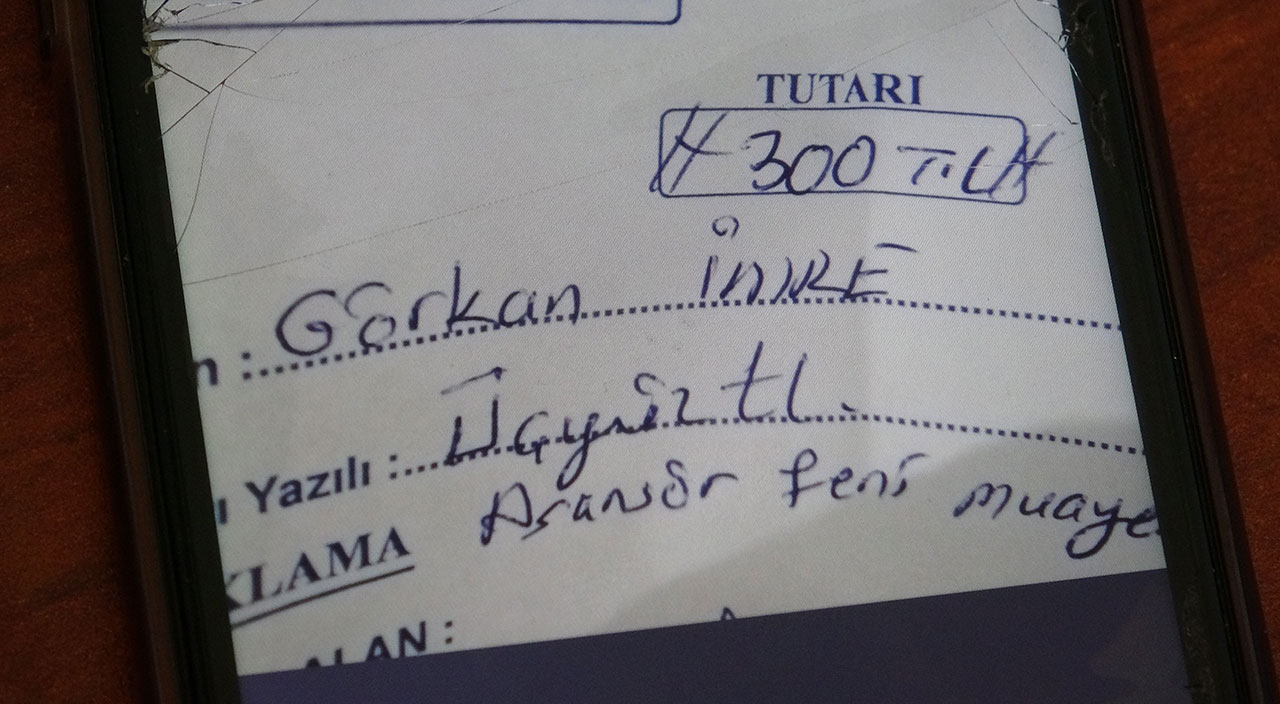 TUTARI
# 300 TL #
n : Görkan İMRE
ı Yazılı : Üçyüz tl.
KLAMA Asansör feni muaye
ALAN :